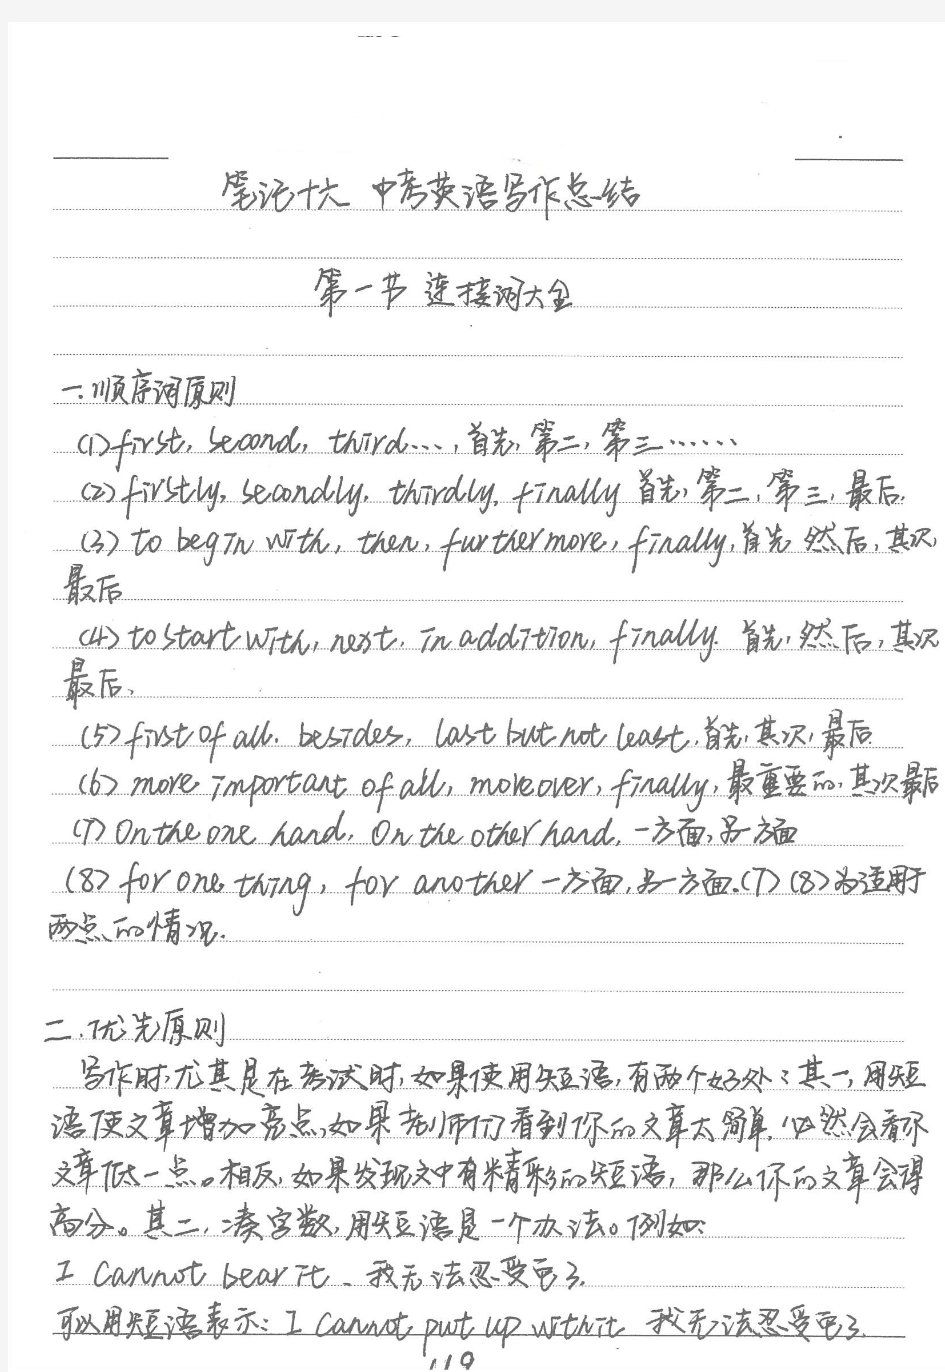 笔记十六 中考英语写作总结
第一节 连接词大全
一.顺序词原则
(1)first, second, third...,首先,第二,第三......
(2)firstly, secondly, thirdly, finally 首先,第二,第三,最后.
(3)to begin with, then, furthermore, finally,首先 然后,其次,
最后
(4)to start with, next, in addition, finally. 首先,然后,其次
最后、
(5)first of all. besides, last but not least,首先,其次,最后.
(6) more important of all, moreover, finally,最重要的,其次最后
(7)On the one hand, On the other hand, 一方面,另一方面
(8)for one thing, for another 一方面,另一方面.(7)(8)为适用于
两点的情况.
二.优先原则
写作时,尤其是在考试时,如果使用短语,有两个好处:其一,用短
语使文章增加亮点,如果老师们看到你的文章太简单,必然会看你
文章低一点。相反,如果发现文中有精彩的短语,那么你的文章会得
高分。其二,凑字数,用短语是一个办法。例如:
I cannot bear it、我无法忍受它了.
可以用短语表示:I cannot put up with it 我无法忍受它了.
119